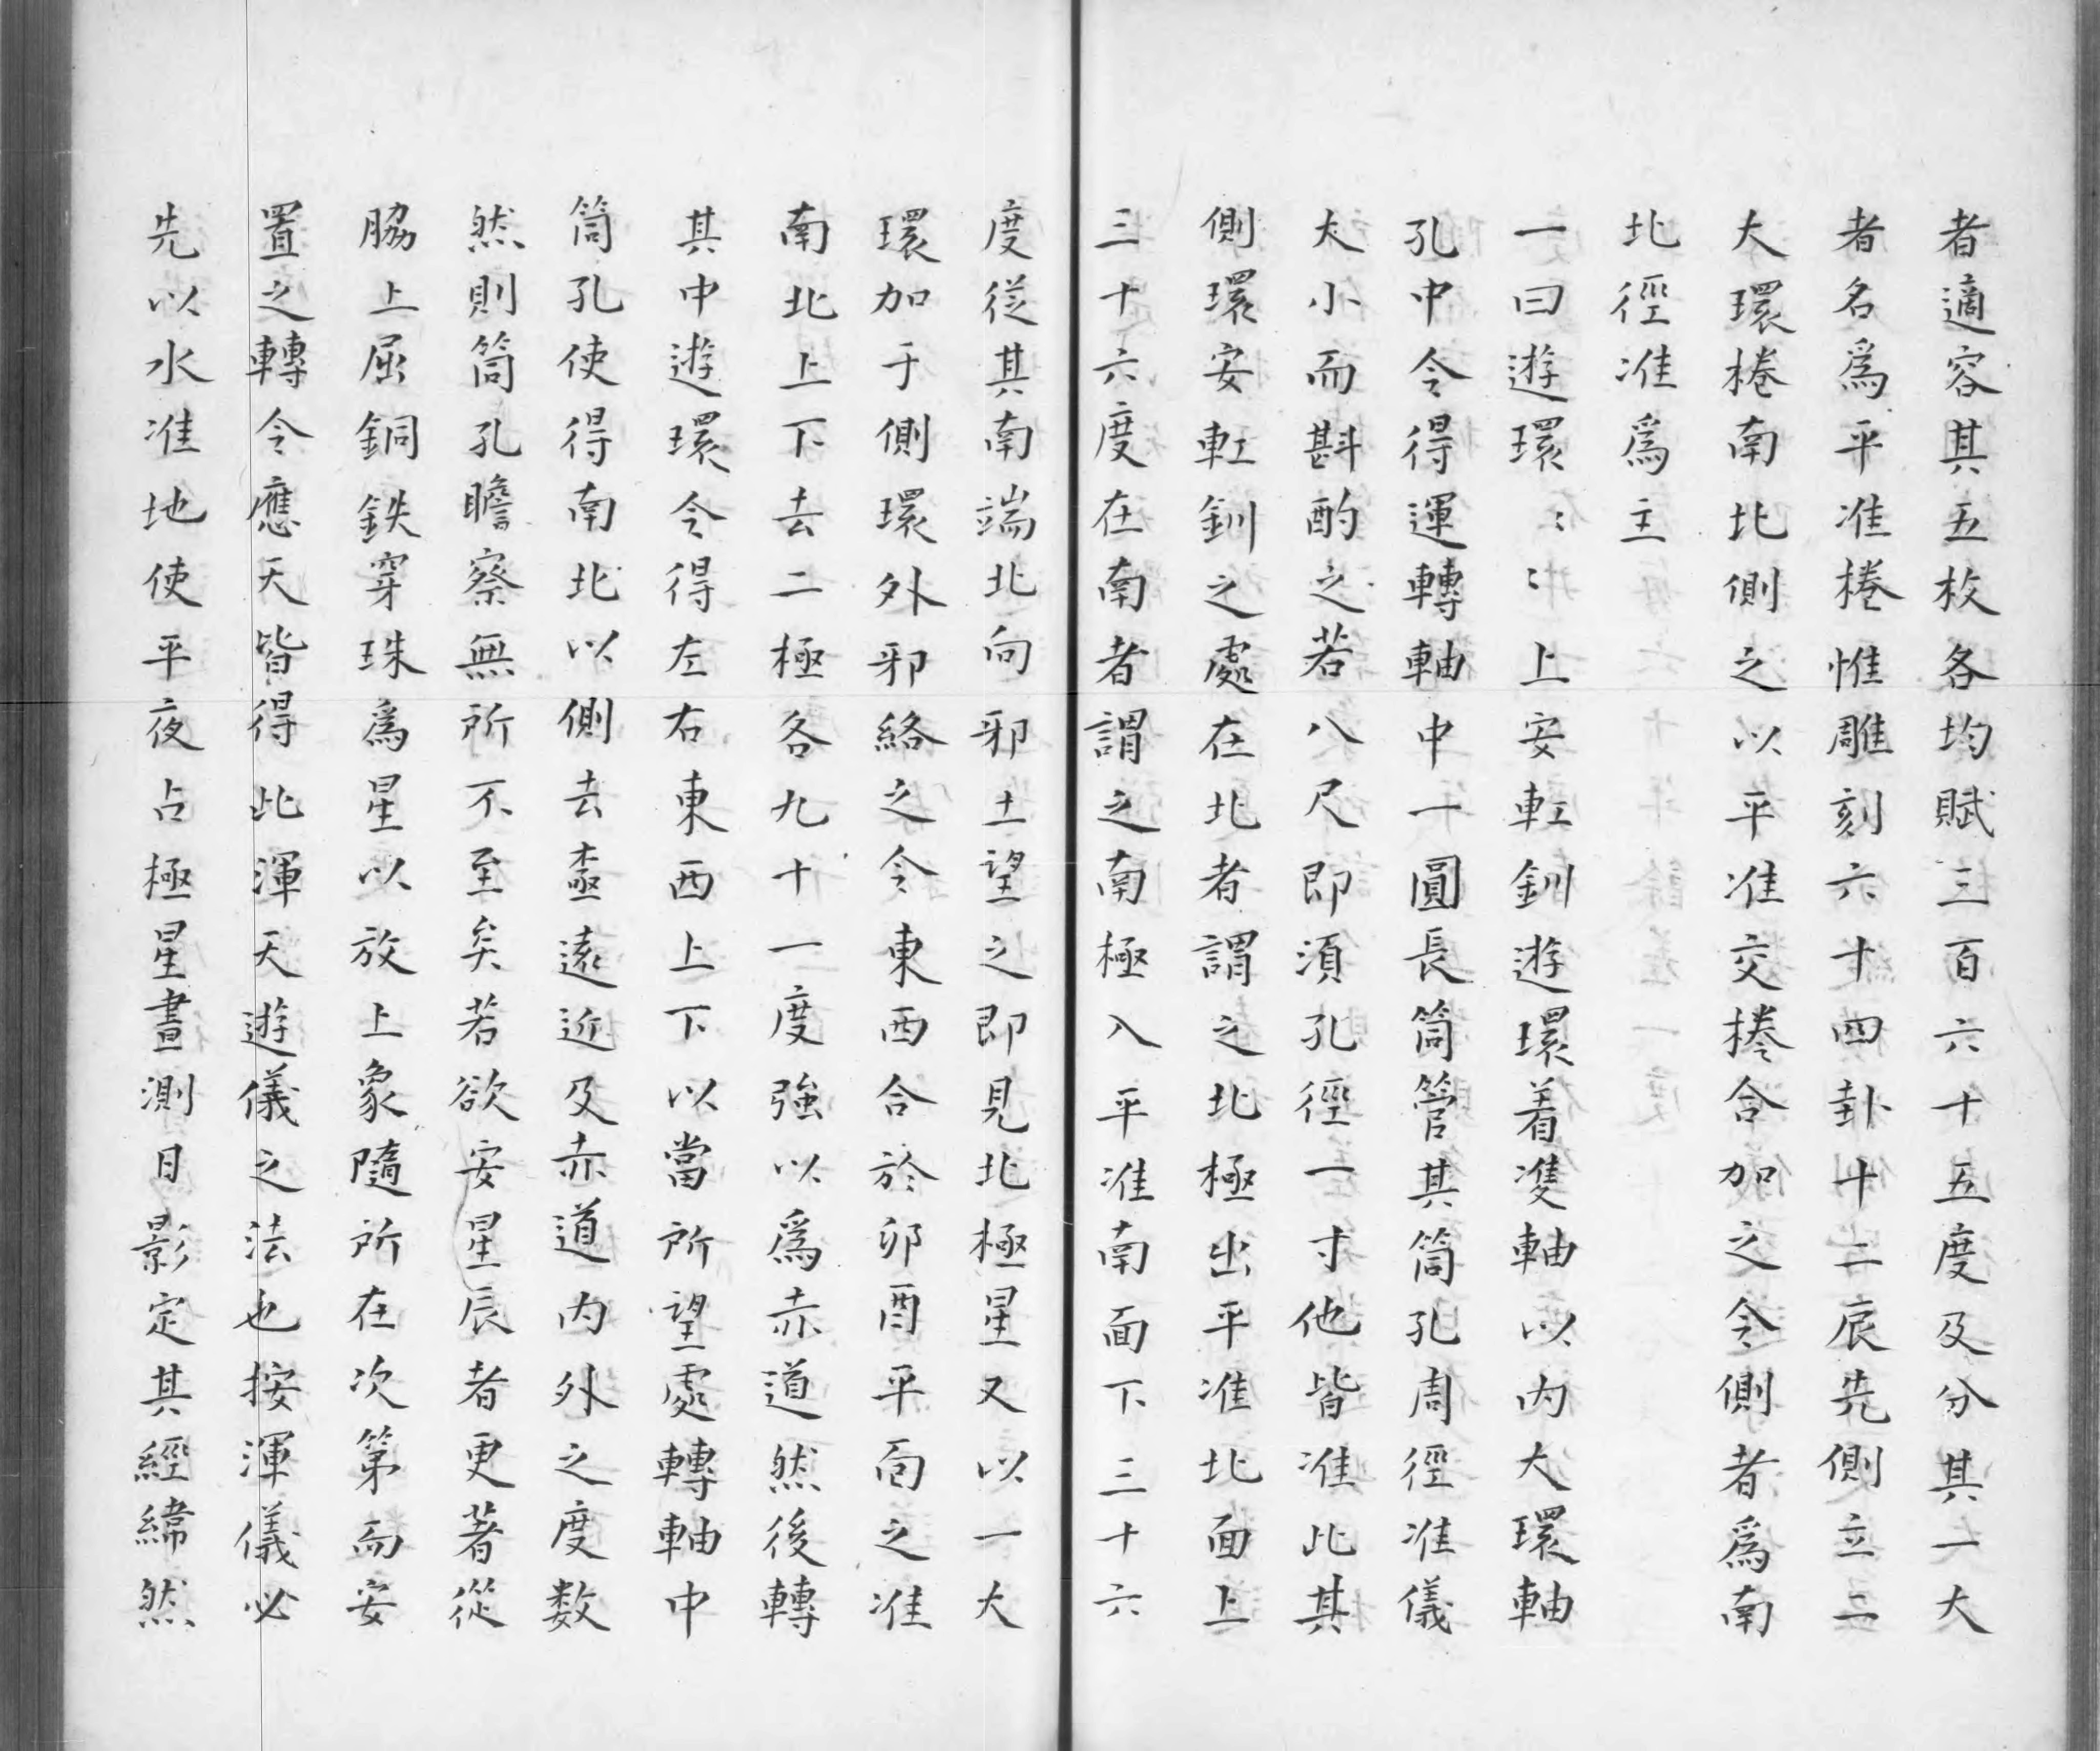 者適容其五枚各均賦三百六十五度及分其一大
者名爲平准棬惟雕刻六十四卦十二辰先側立二
大環棬南北側之以平准交棬合加之令側者爲南
北徑准爲主
一曰遊環〻〻上安軖釧遊環着䨇軸以内大環軸
孔中令得運轉軸中一圓長筒管其筒孔周徑准儀
大小而斟酌之若八尺即須孔徑一寸他皆准比其
側環安軖釧之處在北者謂之北極出平准北面上
三十六度在南者謂之南極入平准南面下三十六
度從其南端北向邪土望之即見北極星又以一大
環加于側環外邪絡之令東西合於卯酉平面之准
南北上下去二極各九十一度強以爲赤道然後轉
其中遊環令得左右東西上下以當所望處轉軸中
筒孔使得南北以側去極遠近及赤道内外之度数
然則筒孔瞻察無所不至矣若欲安星辰者更著從
脇上屈銅鉄穿珠爲星以放上象隨所在次第而安
置之轉令應天皆得此渾天遊儀之法也按渾儀必
先以水准地使平夜占極星晝測日影定其經緯然